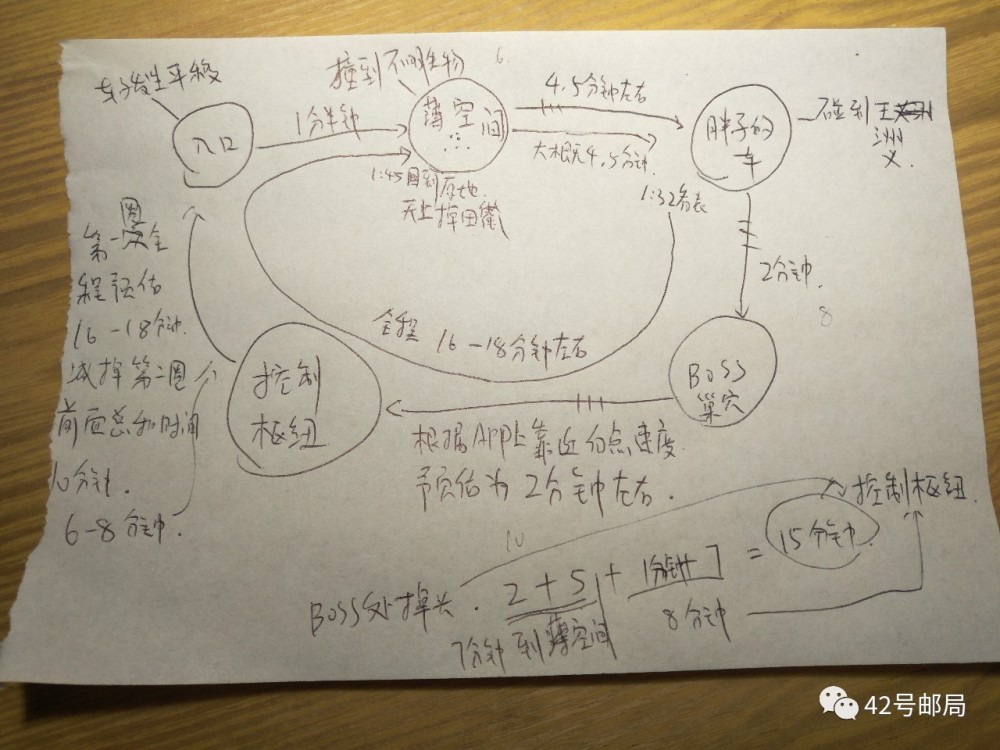 车子发生平移
撞到不明生物
6
入口
1分半钟
薄空间
4.5分钟左右
大概无4.5分钟
胖子的
车
碰到王
洲
义.
1:45回到原地.
天上掉田徽
1:32务表
2分钟.
8
第一圈全
程预估
16-18分钟.
减掉第二圈
前面总和时间
10分钟.
6-8分钟.
全程 16-18分钟左右
控制
枢纽
BOSS
巢穴
根据APP上靠近的点速度
预估为2分钟左右.
控制枢纽.
10
BOSS处掉头. 2+5+1分钟+7=15分钟.
7分钟到薄空间
8分钟
42号邮局